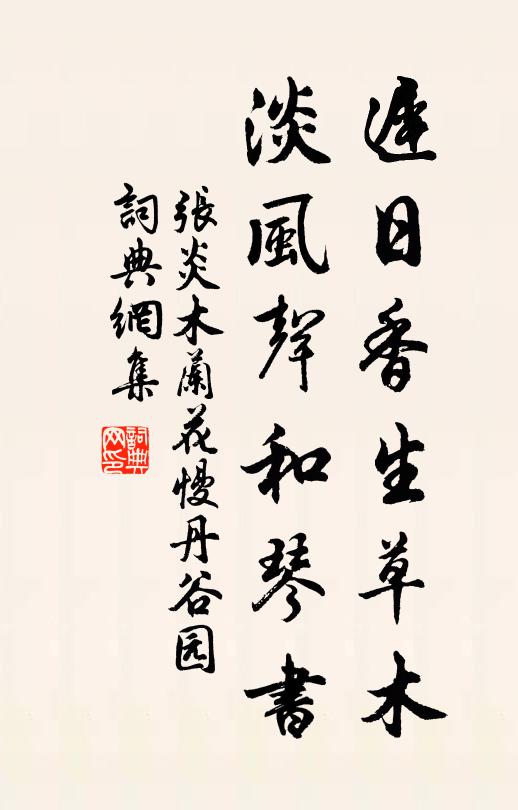 遲日香生草木
淡風聲和琴書
張炎木蘭花慢丹谷园
詞典網集
詞典
网印